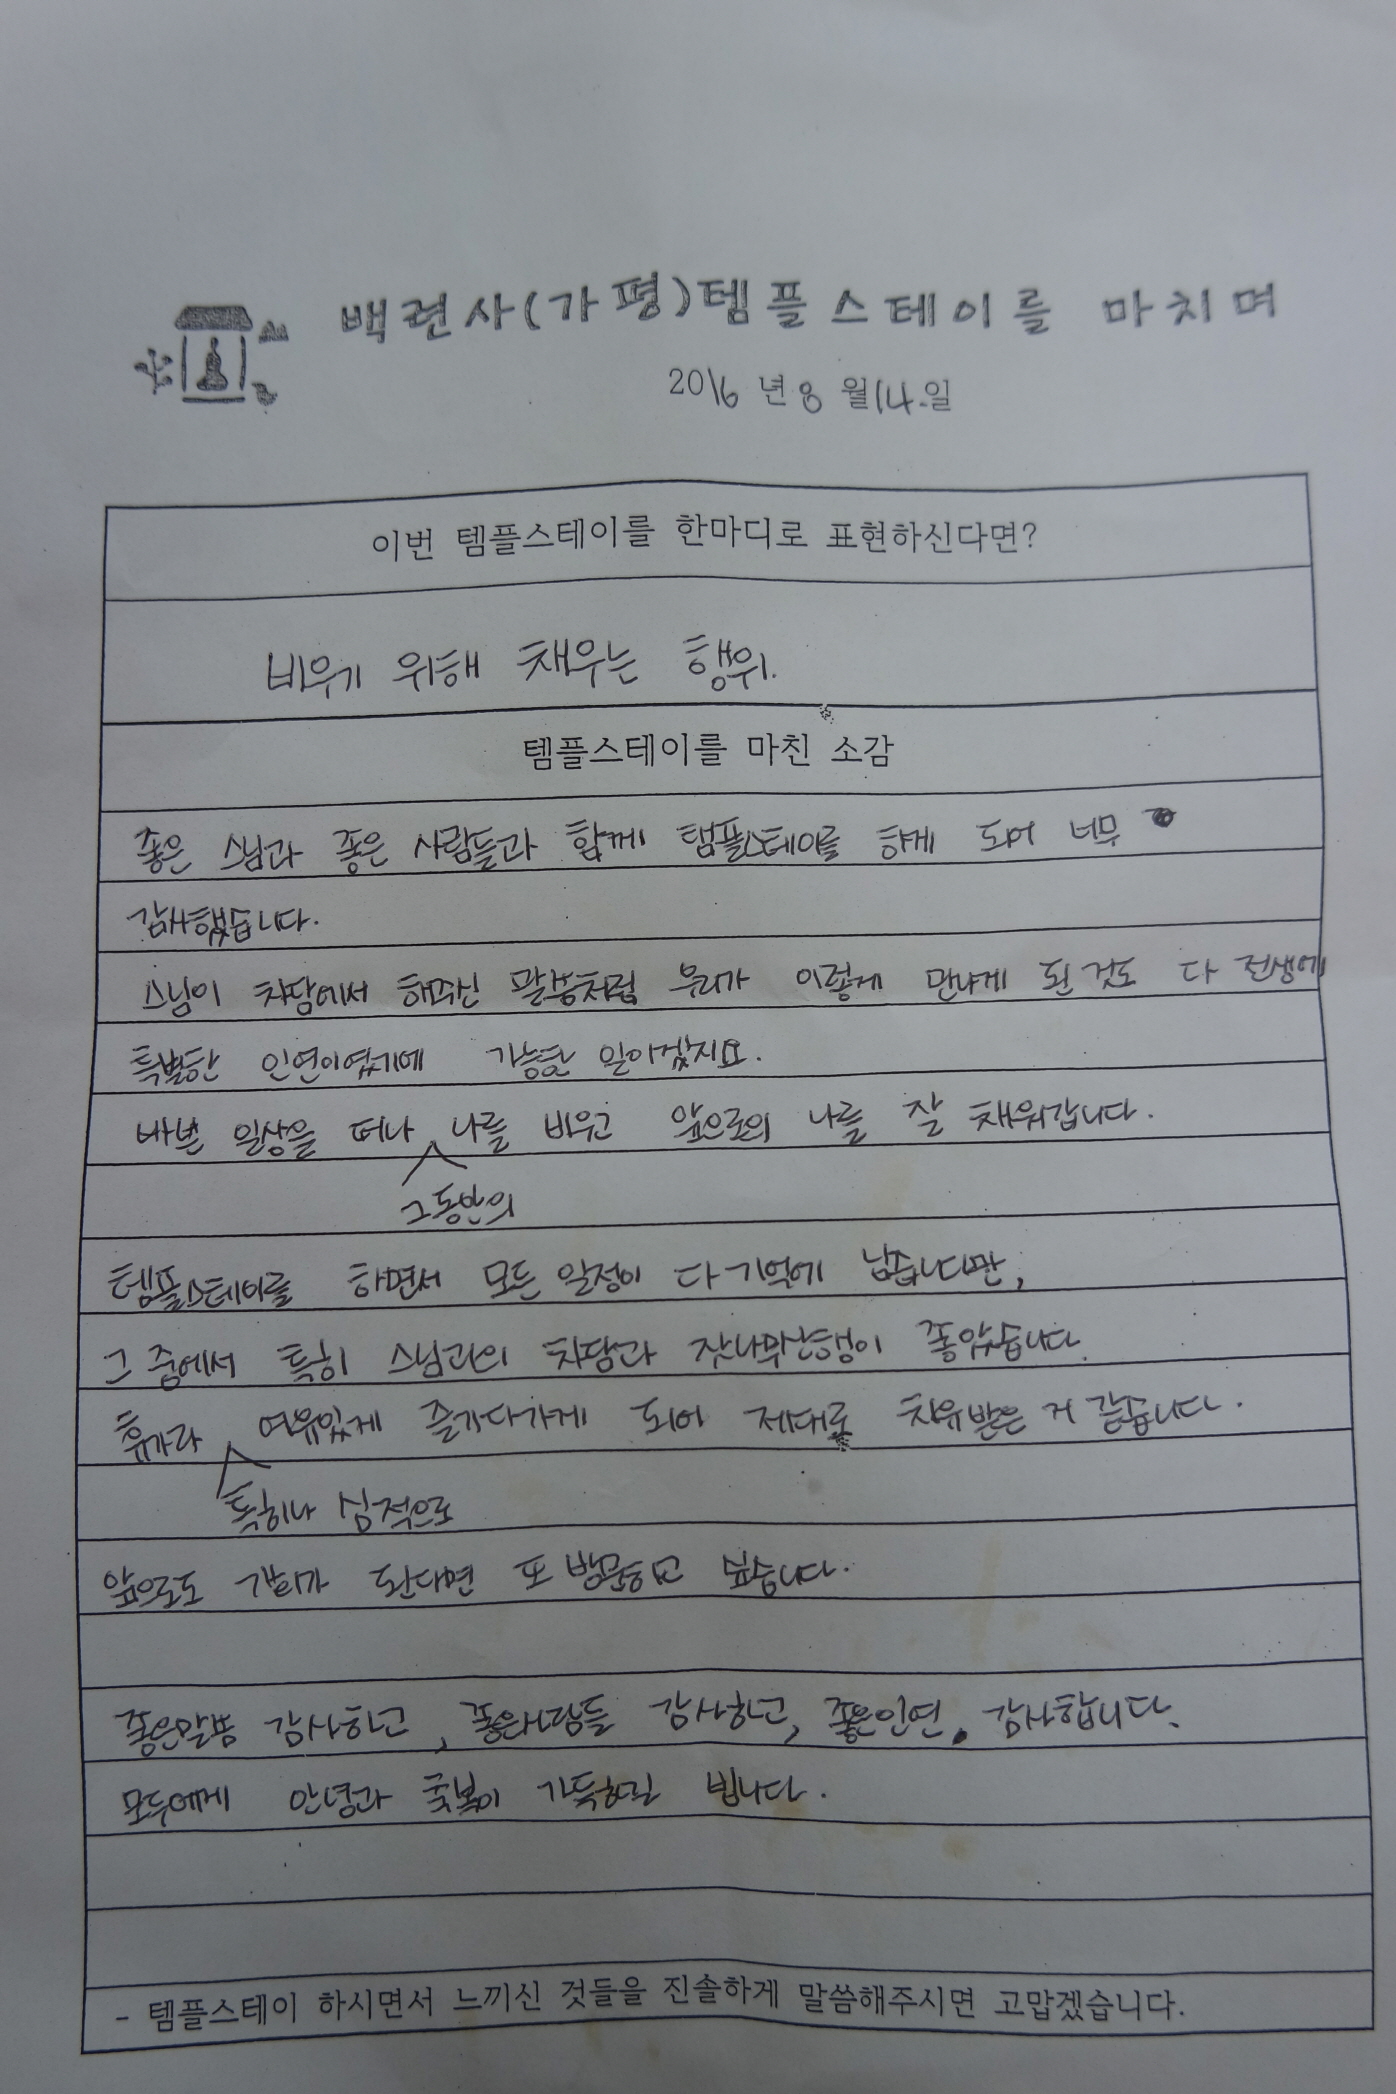 백련사(가평)템플스테이를 마치며
2016 년 8 월 14일
이번 템플스테이를 한마디로 표현하신다면?
비우기 위해 채우는 행위.
템플스테이를 마친 소감
좋은 스님과 좋은 사람들과 함께 템플스테이를 하게 되어 너무
감사했습니다.
스님이 차담에서 해주신 말씀처럼 우리가 이렇게 만나게 된 것도 다 전생에
특별한 인연이였기에 가능한 일이겠지요.
바쁜 일상을 떠나 나를 비우고 앞으로의 나를 잘 채워갑니다.
그동안의
템플스테이를 하면서 모든 일정이 다 기억에 남습니다만,
그 중에서 특히 스님과의 차담과 잣나무산행이 좋았습니다.
휴가라 여유있게 즐기다가게 되어 제대로 치유받은 거 같습니다.
특히나 심적으로
앞으로도 기회가 된다면 또 방문하고 싶습니다.
좋은말씀 감사하고, 좋은사람들 감사하고, 좋은인연, 감사합니다.
모두에게 안녕과 축복이 가득하길 빕니다.
- 템플스테이 하시면서 느끼신 것들을 진솔하게 말씀해주시면 고맙겠습니다.